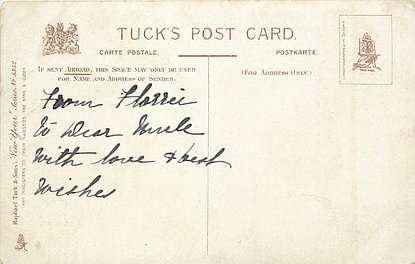 TUCK'S POST CARD.
CARTE POSTALE. POSTKARTE.
IF SENT ABROAD, THIS SPACE MAY ONLY BE USED
FOR NAME AND ADDRESS OF SENDER.
(FOR ADDRESS ONLY.)
From Florrie
to Dear Uncle
with love & best
wishes
Raphael Tuck & Sons' "New Year" Series
ART PUBLISHERS TO THEIR MAJESTIES THE KING & QUEEN